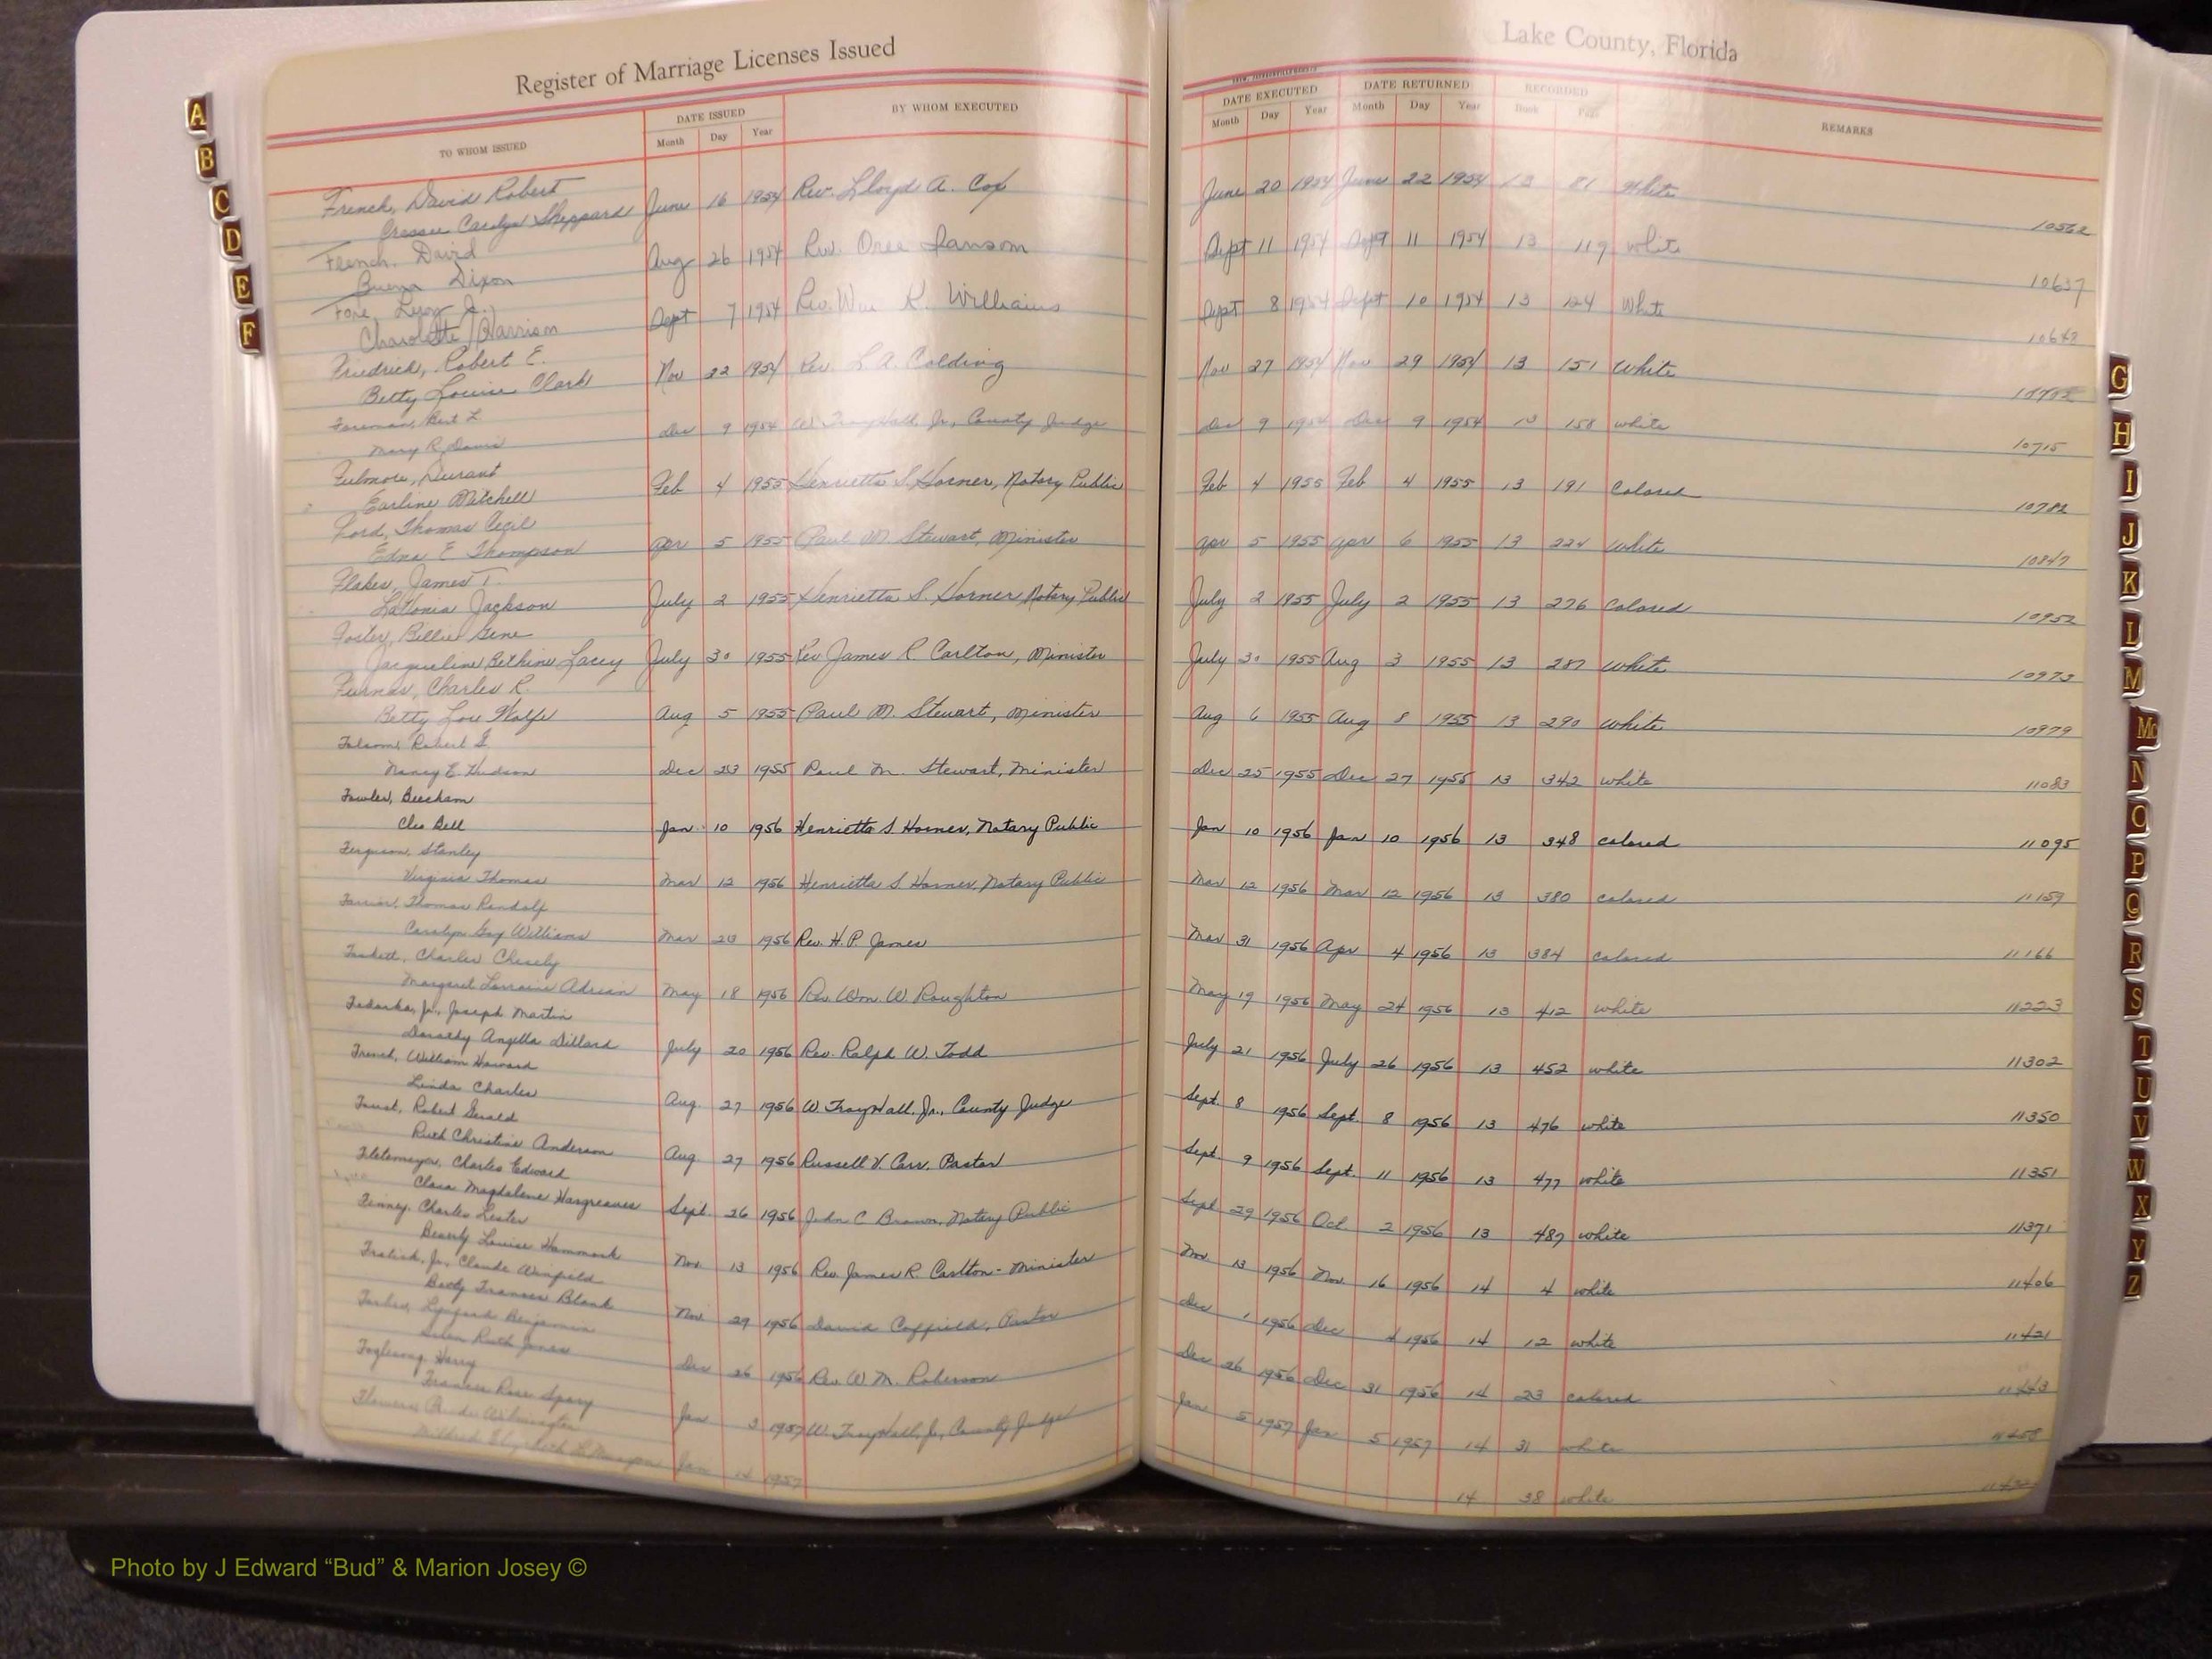 Register of Marriage Licenses Issued
Lake County, Florida
TO WHOM ISSUED
DATE ISSUED
Month Day Year
BY WHOM EXECUTED
DATE EXECUTED
Month Day Year
DATE RETURNED
Month Day Year
RECORDED
Book Page
REMARKS
French, David Robert
Carolyn Sheppard June 16 1954 Rev. Lloyd A. Cox June 20 1954 June 22 1954 13 81 White 10562
French, David
Buena Dixon Aug 26 1954 Rev. Ransom Sept 11 1954 Sept 11 1954 13 119 White 10637
Fore, Jr.
Charolette Harrison Sept 7 1954 Rev. Wm K. Williams Sept 8 1954 Sept 10 1954 13 124 White
Friedrich, Robert E.
Betty Louise Clark Nov 22 1954 Rev. L A. Colding Nov 27 1954 Nov 29 1954 13 151 White
Foreman, Bert L.
Mary R. Davis Dec 9 1954 W Troy Hall, Jr., County Judge Dec 9 1954 Dec 9 1954 13 158 white 10715
Fulmore, Durant
Earline Mitchell Feb 4 1955 Henrietta S Horner, Notary Public Feb 4 1955 Feb 4 1955 13 191 Colored 10782
Ford, Thomas Cecil
Edna E Thompson Apr 5 1955 Paul M. Stewart, Minister Apr 5 1955 Apr 6 1955 13 224 White 10847
Flakes, James T.
LaVonia Jackson July 2 1955 Henrietta S. Horner Notary Public July 2 1955 July 2 1955 13 276 Colored 10952
Foster, Billie Gene
Jacqueline Bethine Lacey July 30 1955 Rev James R. Carlton, Minister July 30 1955 Aug 3 1955 13 287 White 10973
Furnas, Charles R.
Betty Lou Wolfe Aug 5 1955 Paul M. Stewart, Minister Aug 6 1955 Aug 8 1955 13 290 White 10979
Folsom, Robert
Nancy E. Hudson Dec 23 1955 Paul M. Stewart, Minister Dec 25 1955 Dec 27 1955 13 342 white 11083
Fowler, Beecham
Cleo Bell Jan 10 1956 Henrietta S Horner, Notary Public Jan 10 1956 Jan 10 1956 13 348 colored 11095
Ferguson, Stanley
Virginia Thomas Mar 12 1956 Henrietta S Horner, Notary Public Mar 12 1956 Mar 12 1956 13 380 colored 11159
Farrior, Thomas Randolf
Carolyn Gay Williams Mar 23 1956 Rev. H. P. James Mar 31 1956 Apr 4 1956 13 384 colored 11166
Charles Chesely
Margaret Lorraine Adrian May 18 1956 Rev. Wm. W. Roughton May 19 1956 May 24 1956 13 412 white 11223
Fedorka, Jr., Joseph Martin
Dorothy Angella Dillard July 20 1956 Rev. Ralph W. Todd July 21 1956 July 26 1956 13 452 white 11302
French, William Howard
Linda Charles Aug. 27 1956 W Troy Hall, Jr., County Judge Sept. 8 1956 Sept. 8 1956 13 476 white 11350
Faust, Robert Gerald
Ruth Christine Anderson Aug. 27 1956 Russell V. Carr, Pastor Sept. 9 1956 Sept. 11 1956 13 477 white 11351
Fletemeyer, Charles Edward
Clara Magdalene Hargreaves Sept. 26 1956 John C Brown, Notary Public Sept 29 1956 Oct 2 1956 13 487 white 11371
Finney, Charles Lester
Beverly Louise Hammock Nov. 13 1956 Rev. James R. Carlton - Minister Nov. 13 1956 Nov. 16 1956 14 4 white 11406
Fralick, Jr., Claude Winfield
Betty Frances Blank Nov. 29 1956 David Coffield, Pastor Dec 1 1956 Dec 4 1956 14 12 white 11421
Benjamin
Ruth Jones Dec 26 1956 Rev W M. Roberson Dec 26 1956 Dec 31 1956 14 23 colored 11443
Foglesong, Harry
Frances Rose Spary Jan 3 1957 W. Troy Hall, Jr., County Judge Jan 5 1957 Jan 5 1957 14 31 white 11458
Flowers,
Mildred Elizabeth Jan 14 1957 14 38 white
A
B
C
D
E
F
G
H
I
J
K
L
M
Mc
N
O
P
Q
R
S
T
U
V
W
X
Y
Z
Photo by J Edward “Bud” & Marion Josey ©